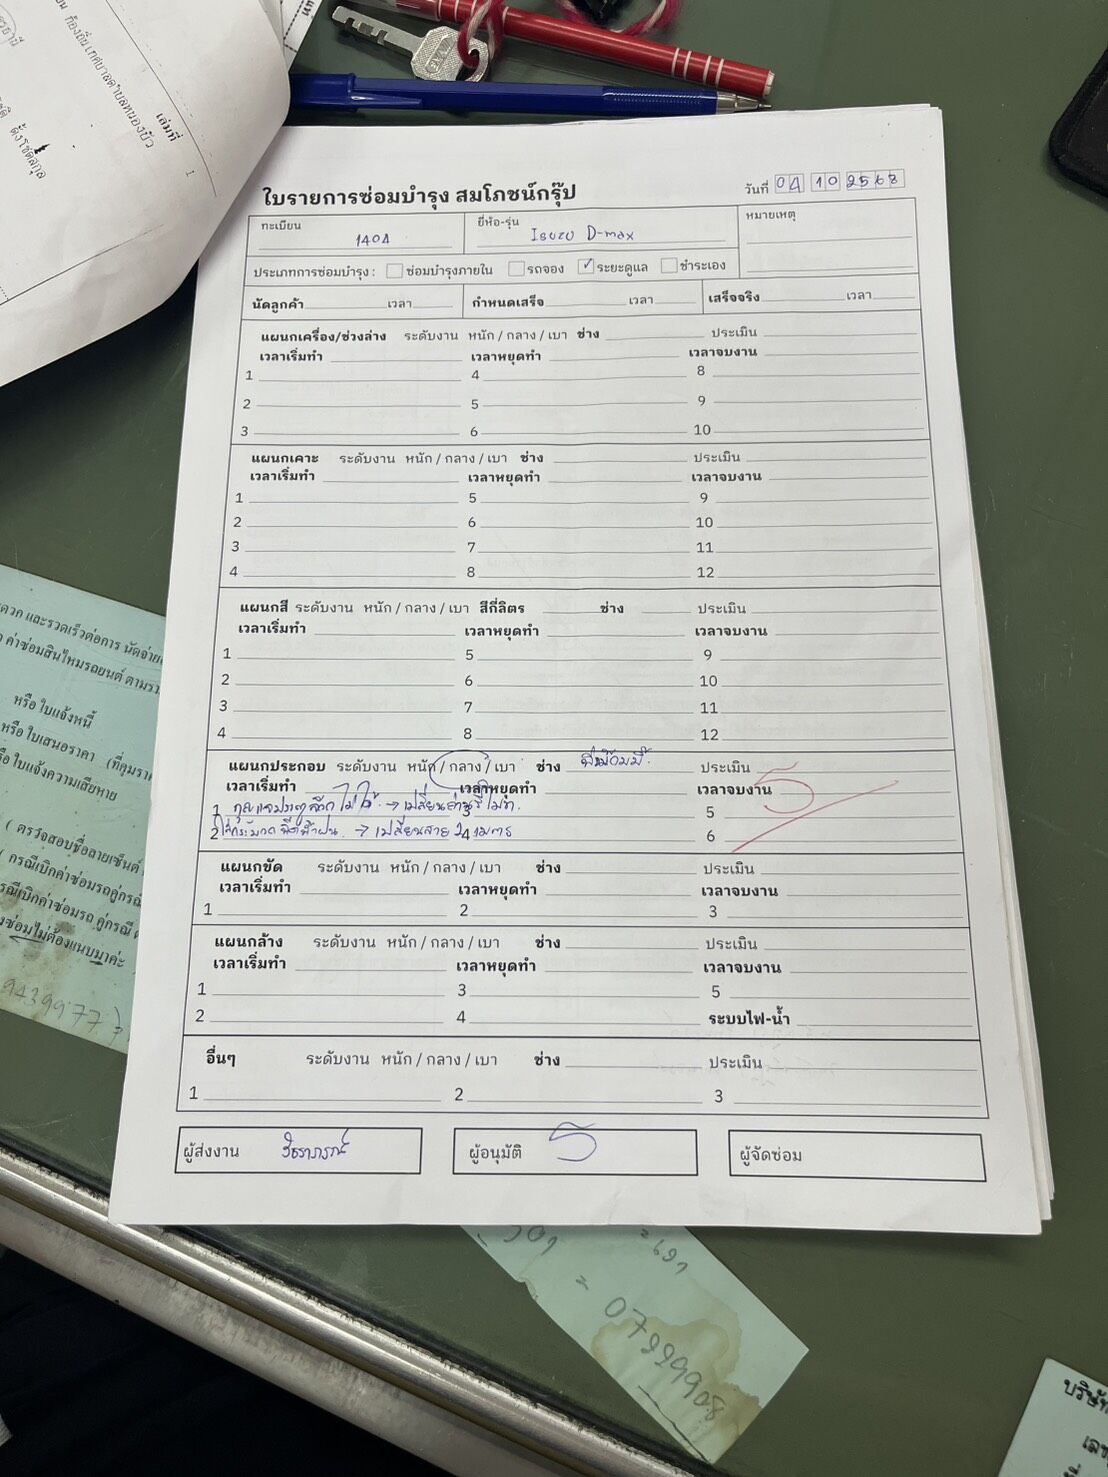 เล่มที่
1
ท้องถิ่น เทศบาลตำบลหนองบัว
ใบรายการซ่อมบำรุง สมโภชน์กรุ๊ป
วันที่ 04 10 2568
ทะเบียน 1404
ยี่ห้อ-รุ่น Isuzu D-max
หมายเหตุ
ประเภทการซ่อมบำรุง : ซ่อมบำรุงภายใน รถจอง ✓ ระยะดูแล ชำระเอง
นัดลูกค้า เวลา กำหนดเสร็จ เวลา เสร็จจริง เวลา
แผนกเครื่อง/ช่วงล่าง ระดับงาน หนัก / กลาง / เบา ช่าง ประเมิน
เวลาเริ่มทำ เวลาหยุดทำ เวลาจบงาน
1 4 8
2 5 9
3 6 10
แผนกเคาะ ระดับงาน หนัก / กลาง / เบา ช่าง ประเมิน
เวลาเริ่มทำ เวลาหยุดทำ เวลาจบงาน
1 5 9
2 6 10
3 7 11
4 8 12
แผนกสี ระดับงาน หนัก / กลาง / เบา สีกี่ลิตร ช่าง ประเมิน
เวลาเริ่มทำ เวลาหยุดทำ เวลาจบงาน
1 5 9
2 6 10
3 7 11
4 8 12
แผนกประกอบ ระดับงาน หนัก / กลาง / เบา ช่าง ประเมิน
เวลาเริ่มทำ เวลาหยุดทำ เวลาจบงาน
1 กุญแจประตูล็อกไม่ได้ → เปลี่ยนถ่านรีโมท 3 5
2 → เปลี่ยนสาย 2 เมตร 4 6
แผนกขัด ระดับงาน หนัก / กลาง / เบา ช่าง ประเมิน
เวลาเริ่มทำ เวลาหยุดทำ เวลาจบงาน
1 2 3
แผนกล้าง ระดับงาน หนัก / กลาง / เบา ช่าง ประเมิน
เวลาเริ่มทำ เวลาหยุดทำ เวลาจบงาน
1 3 5
2 4 ระบบไฟ-น้ำ
อื่นๆ ระดับงาน หนัก / กลาง / เบา ช่าง ประเมิน
1 2 3
ผู้ส่งงาน
ผู้อนุมัติ
ผู้จัดซ่อม
และรวดเร็วต่อการ นัดจ่าย
ค่าซ่อมสินไหมรถยนต์
หรือ ใบแจ้งหนี้
หรือ ใบเสนอราคา
ใบแจ้งความเสียหาย
( ตรวจสอบชื่อลายเซ็นต์
( กรณีเบิกค่าซ่อมรถคู่กรณี
กรณีเบิกค่าซ่อมรถ คู่กรณี
ซ่อมไม่ต้องแนบมาค่ะ
943997